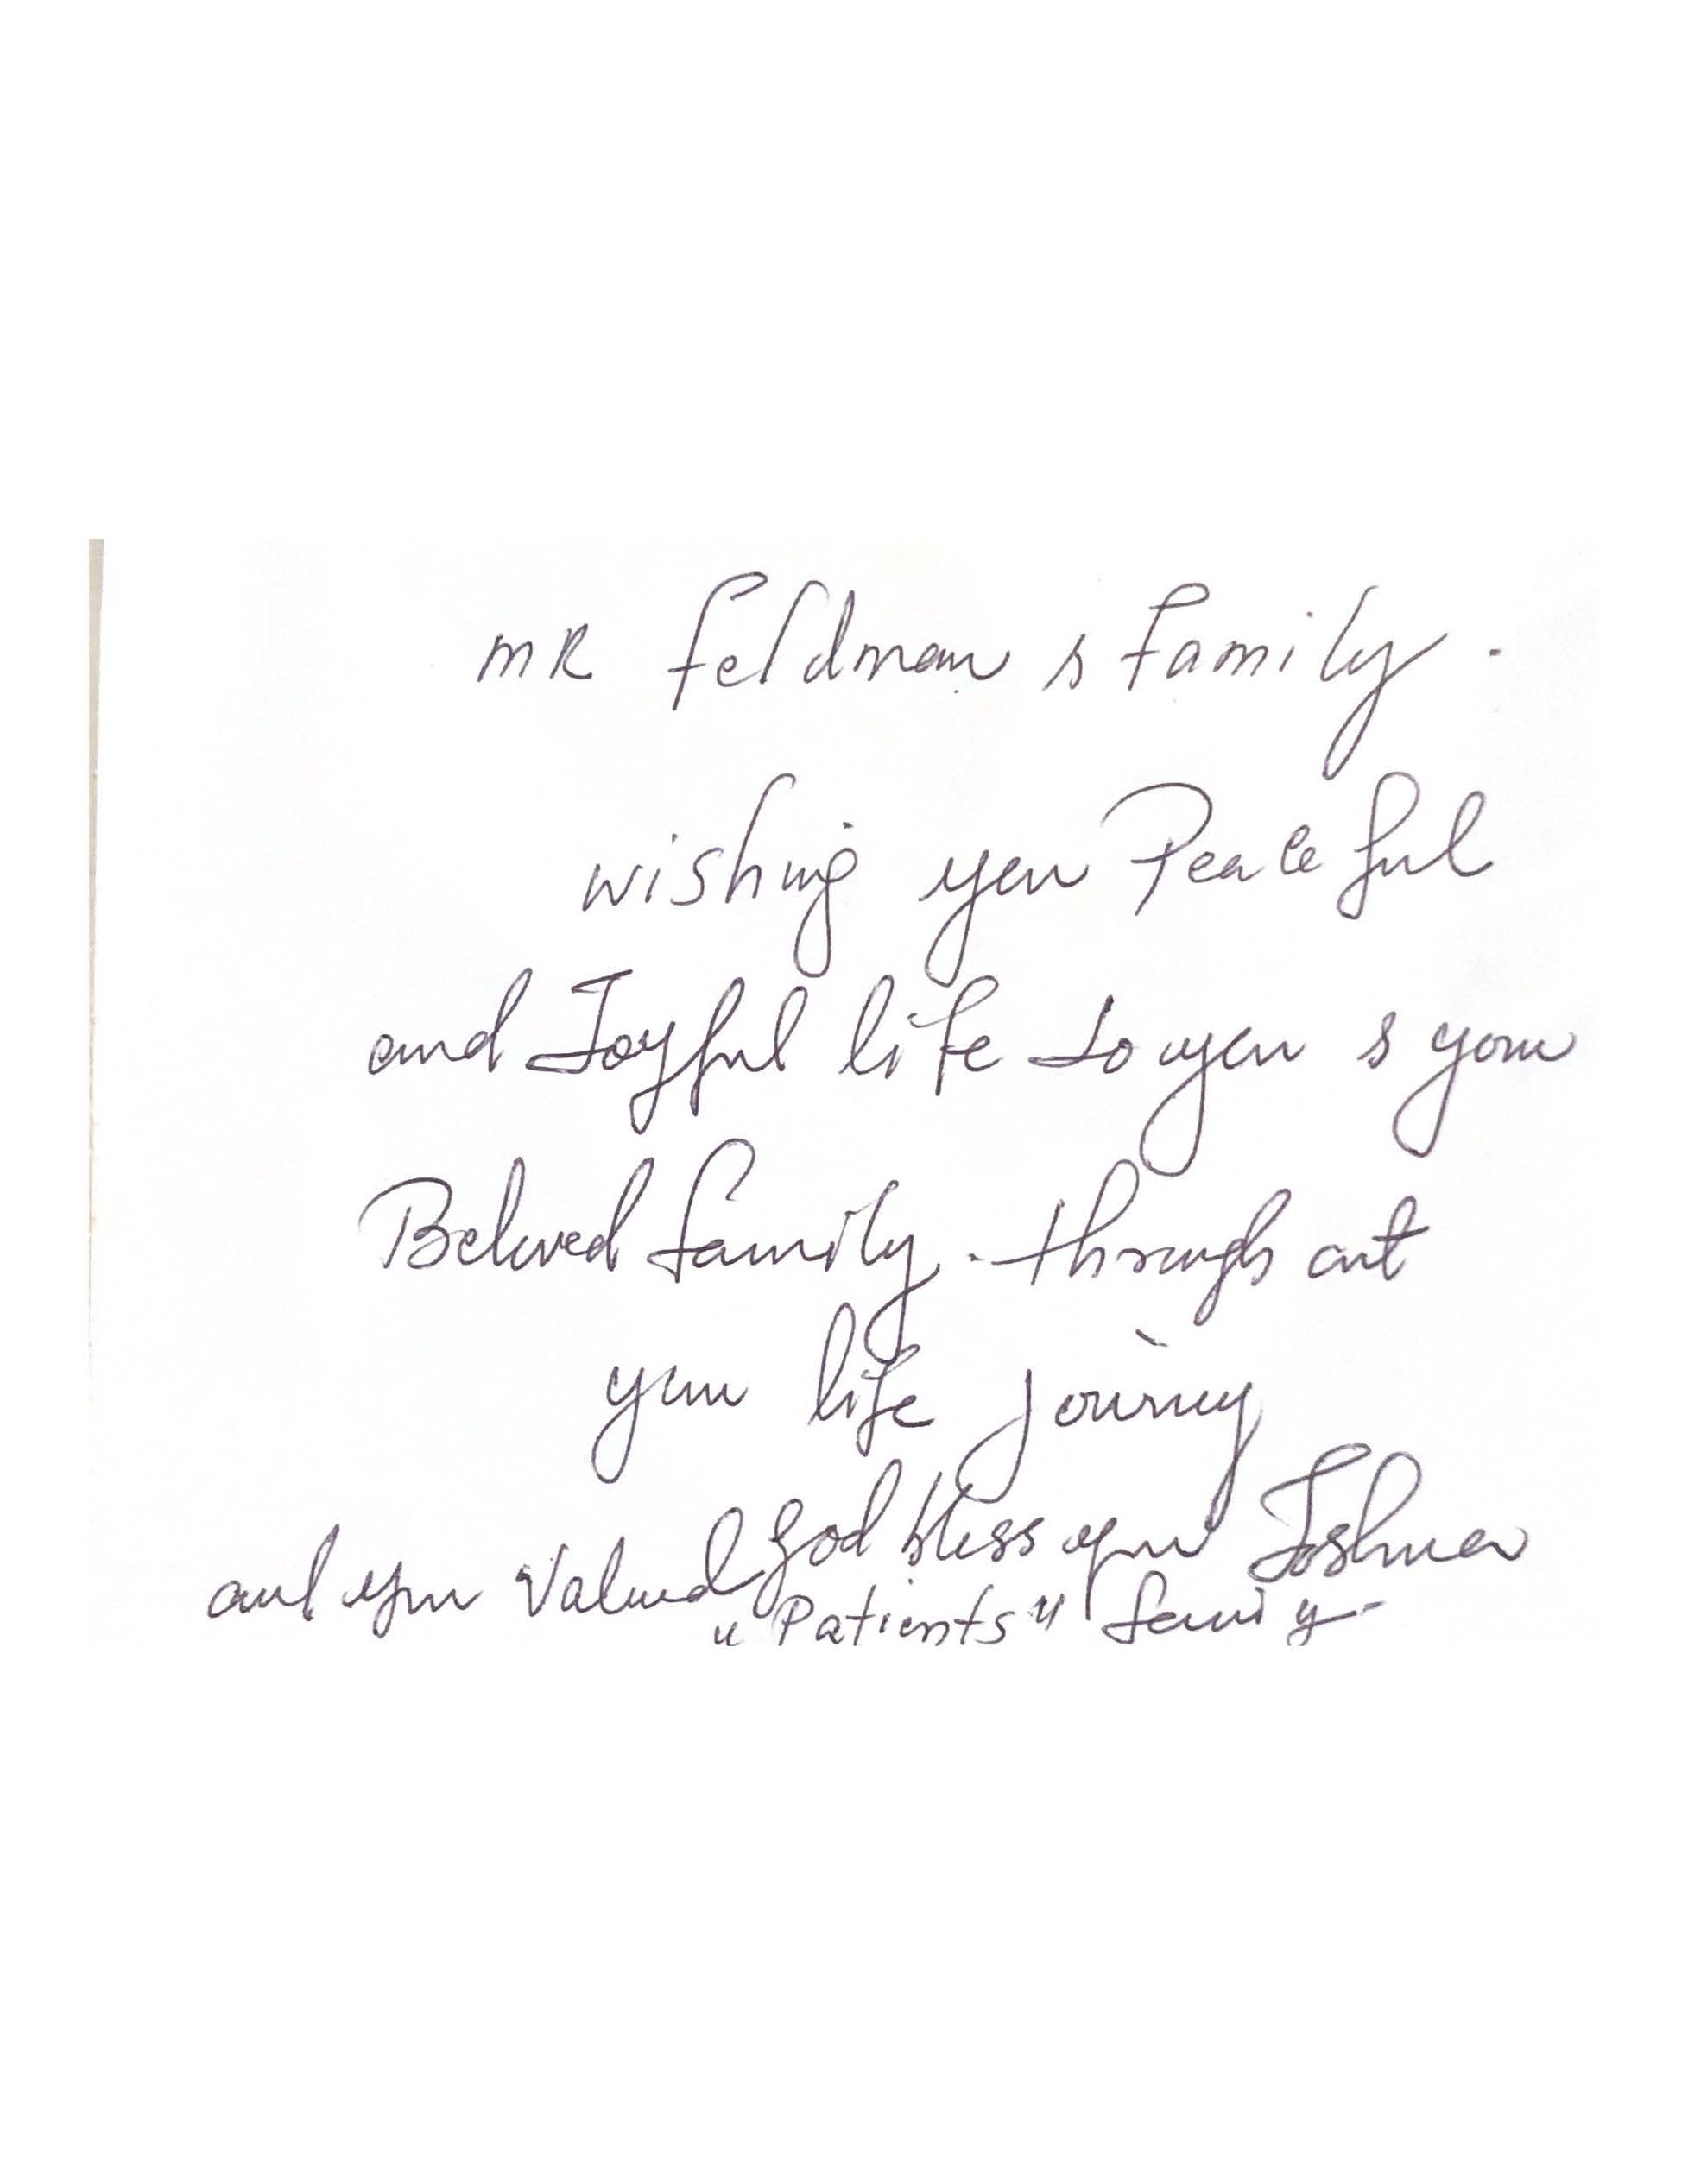 mR feldman & Family.
wishing you Peaceful
and Joyful life to you & your
Beloved family. through out
your life journey
God bless you Joshua
and your Valued
"Patients" family-